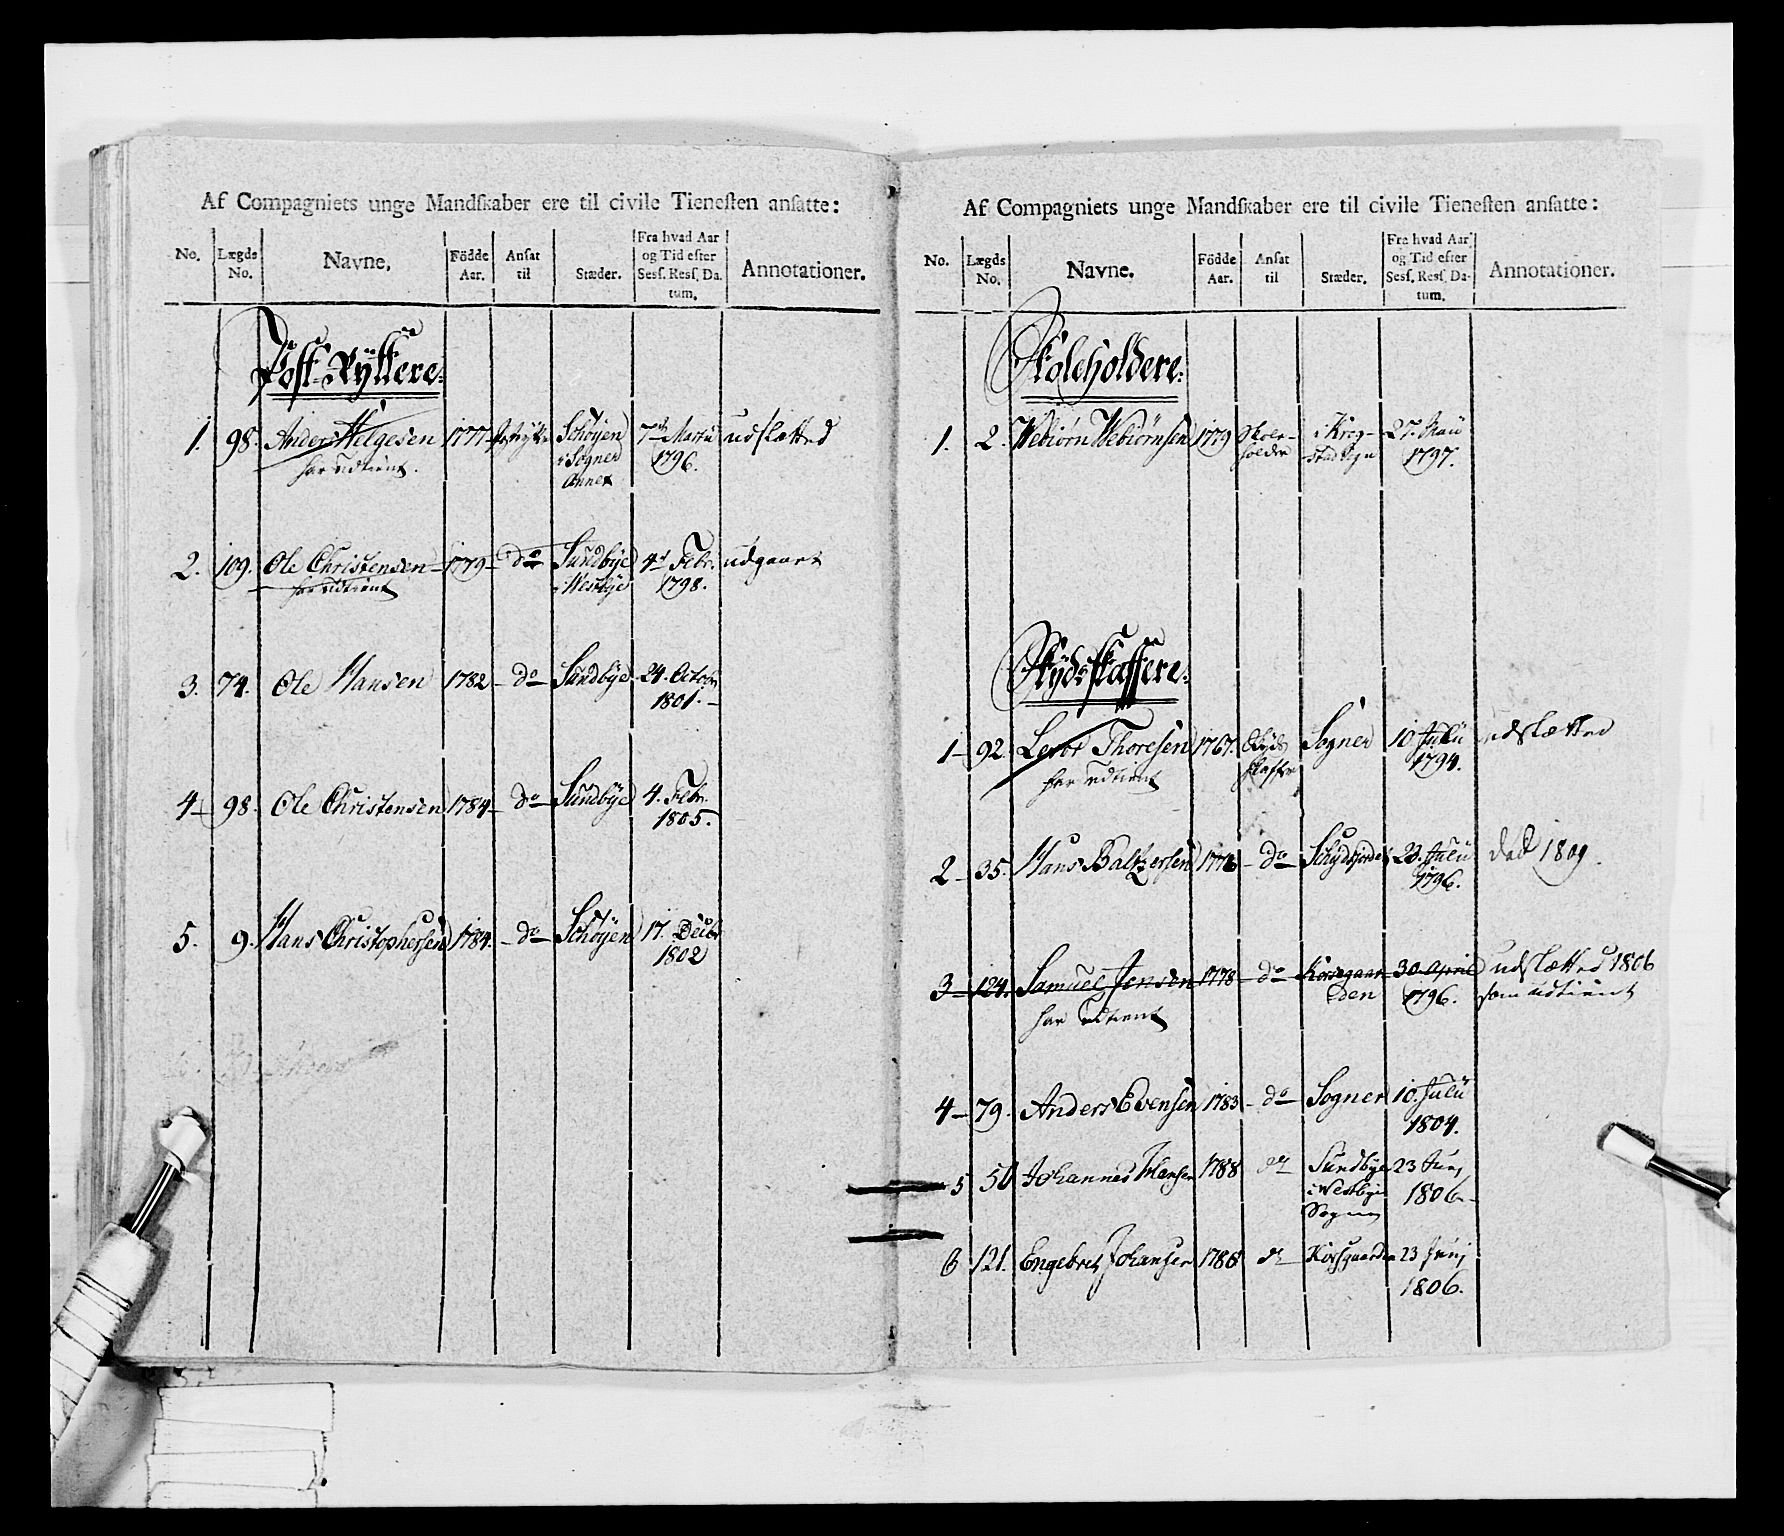 Af Compagniets unge Mandskaber ere til civile Tienesten ansatte:
No. Lægds No. Navne. Födde Aar. Ansat til Stæder. Fra hvad Aar og Tid efter Sess. Resf. Datum. Annotationer.
Post-Ryttere:
1. 98. Anders Helgesen 1777 Postrytter Schöyen 7de Martii udslætted
har udtient. i Sogner 1796.
Annex
2. 109. Ole Christensen 1779 do Sundbye 4d Febr. udgaaet
har udtient i Westbye 1798.
3. 74. Ole Hansen 1782 do Sundbye 24. Octobr
1801.
4 98. Ole Christensen 1784 do Sundbye 4. Febr.
1805.
5. 9. Hans Christophersen 1784. do Schöyen 17. Decbr
1802
Af Compagniets unge Mandskaber ere til civile Tienesten ansatte:
No. Lægds No. Navne. Födde Aar. Ansat til Stæder. Fra hvad Aar og Tid efter Sess. Resf. Datum. Annotationer.
Skoleholdere:
1. 2. Webiørn Webiørnsen 1779 Skoe- i Krog- 27. Maii
holder stad Sogn 1797.
Skydsskaffere:
1 92. Thoresen 1767. Skyds Sogner 10 Julii udslætted
har udtient skaffer 1794.
2 35. Hans Baltzersen 1776 do 23. Julii død 1809.
1796.
3 124. Samuel Jensen 1778 do Korsegaar- 30 April udslætted 1806
har udtient den 1796. som udtient
4 79. Anders Evensen 1783 do Sogner 10. Julii
1804.
5 50 Johannes Hansen 1788 do Sundbye 23 Junj
i Westbye 1806
Sogn
6 121. Engebret Johansen 1788 do Korsgaarden 23 Junj
1806.